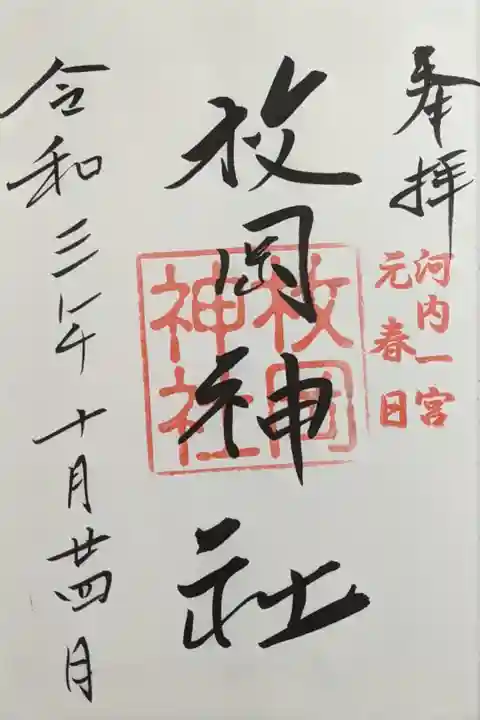 奉拝
河内一宮
元春日
枚岡神社
枚岡
神社
令和三年十月廿四日